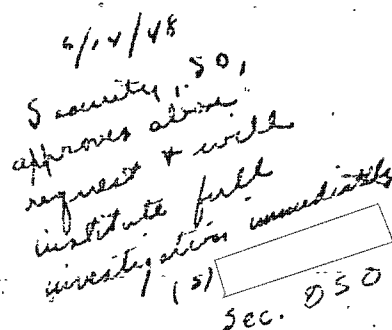 6/14/48
Security, SO,
approves above
request + will
institute full
investigation immediately
(s)
Sec. OSO